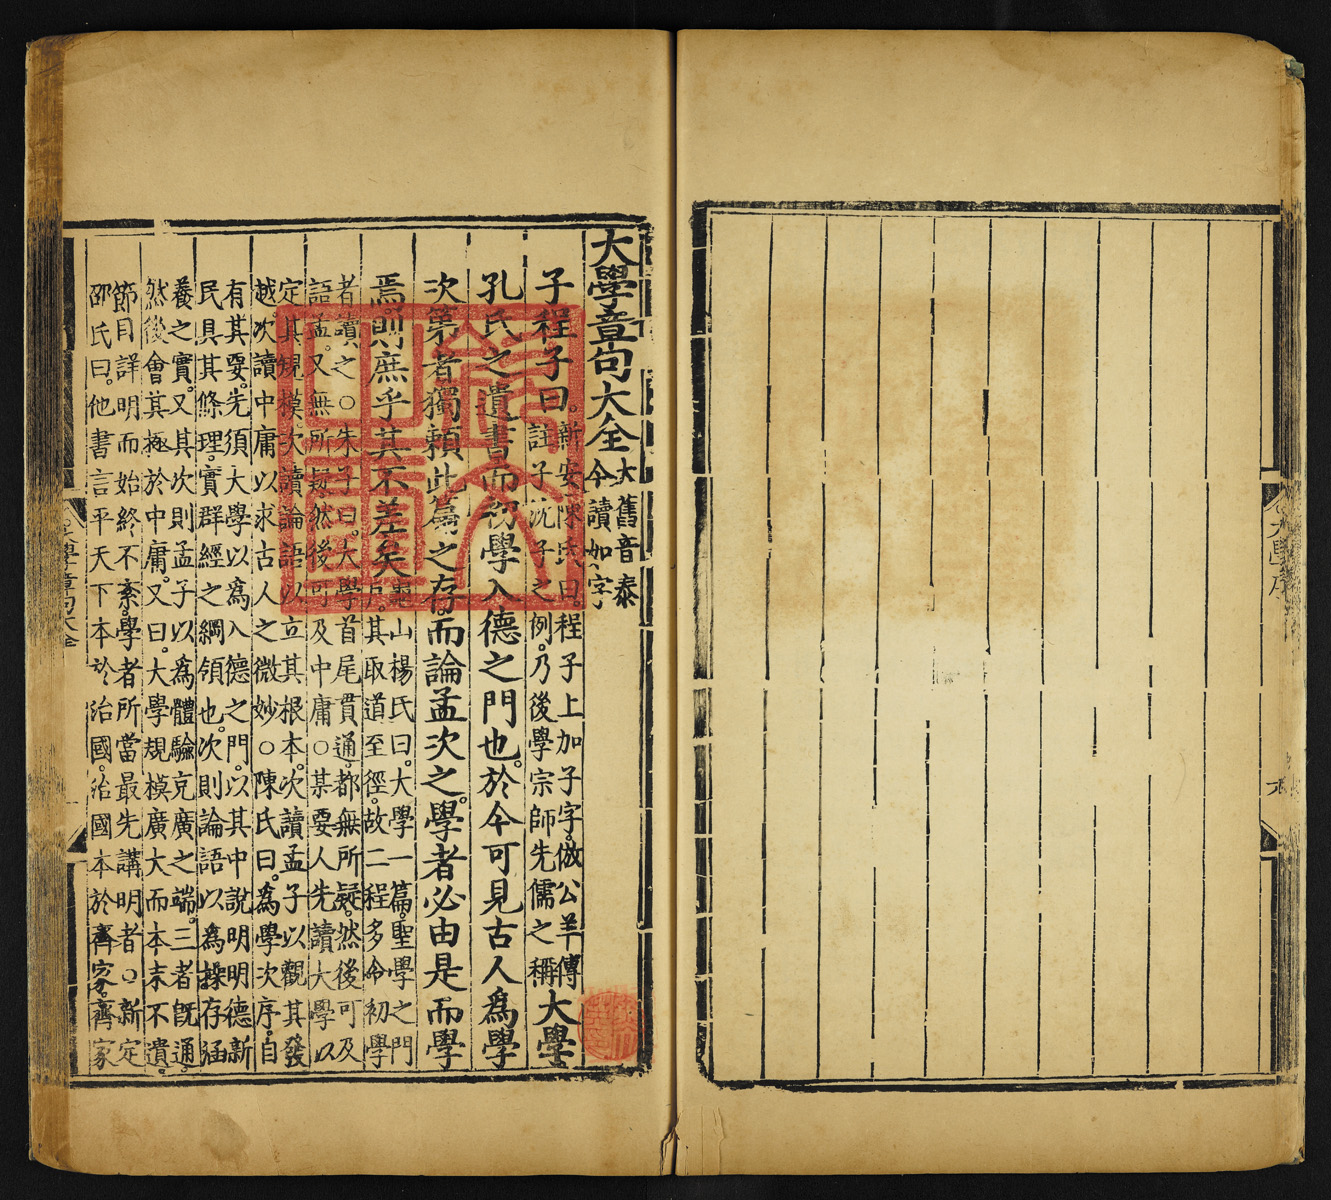 大學序
六
大學章句大全
大舊音泰
今讀如字
子程子曰。
新安陳氏曰。程子上加子字。倣公羊傳
註子沈子之例。乃後學宗師先儒之稱
大學
孔氏之遺書而初學入德之門也。於今可見古人爲學
次第者獨賴此篇之存。而論孟次之。學者必由是而學
焉。則庶乎其不差矣
龜山楊氏曰。大學一篇。聖學之門
戶。其取道至徑。故二程多令初學
者讀之○朱子曰。大學首尾貫通。都無所疑。然後可及
語孟。又無所疑。然後可及中庸○某要人先讀大學以
定其規模。次讀論語以立其根本。次讀孟子以觀其發
越。次讀中庸以求古人之微妙○陳氏曰。爲學次序。自
有其要。先須大學以爲入德之門。以其中說明明德新
民具其條理。實群經之綱領也。次則論語以爲操存涵
養之實。又其次則孟子以爲體驗充廣之端。三者旣通。
然後會其極於中庸。又曰。大學規模廣大而本末不遺。
節目詳明而始終不紊。學者所當最先講明者○新定
邵氏曰。他書言平天下本於治國。治國本於齊家。齊家
大學章句大全